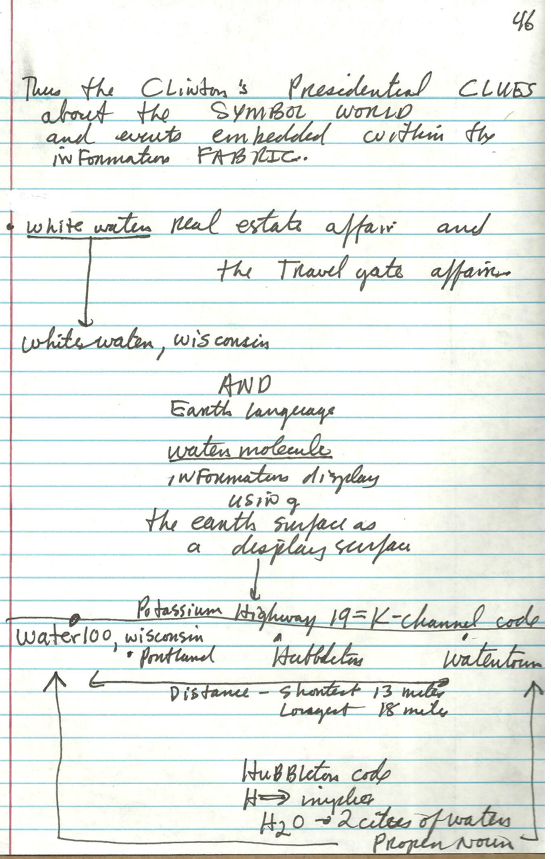 46
Thus the CLinton's Presidential CLUES
about the SYMBOL WORLD
and events embedded within the
inFormation FABRIC.
• white water real estate affair and
the Travel gate affair
whitewater, wisconsin
AND
Earth Language
water molecule
inFormation display
using
the earth surface as
a display surface
Potassium Highway 19 = K-channel code
Waterloo, wisconsin
• Portland Hubbleton Watertown
Distance - Shortest 13 miles
Longest 18 miles
HuBBleton code
H => implies
H2O → 2 cities of water
Proper Noun